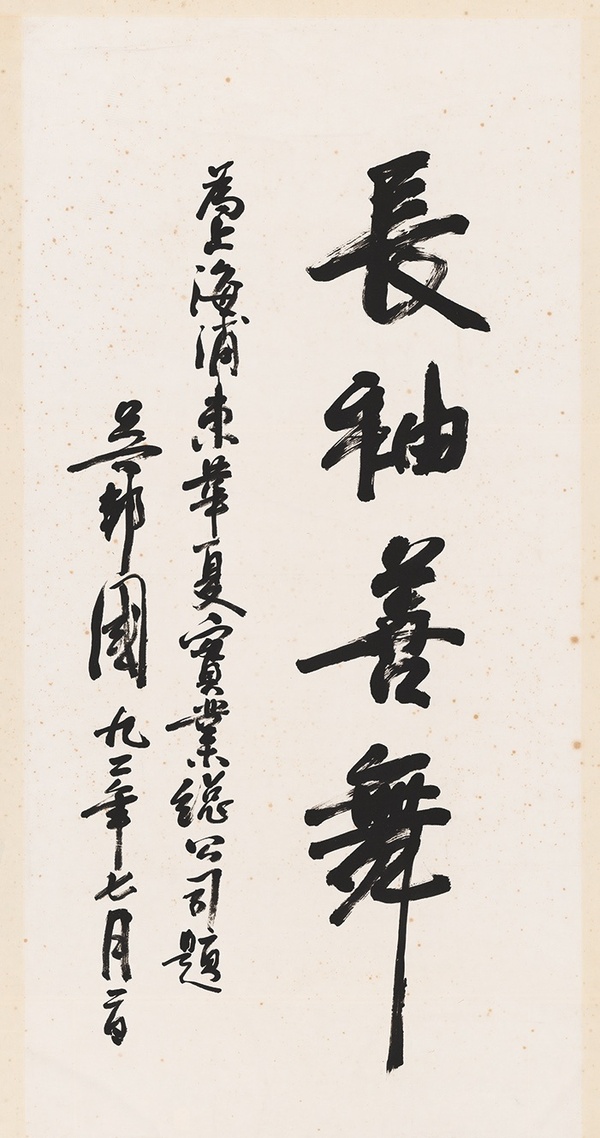 長袖善舞
為上海浦東華夏實業總公司題
吳邦國 九二年七月一日